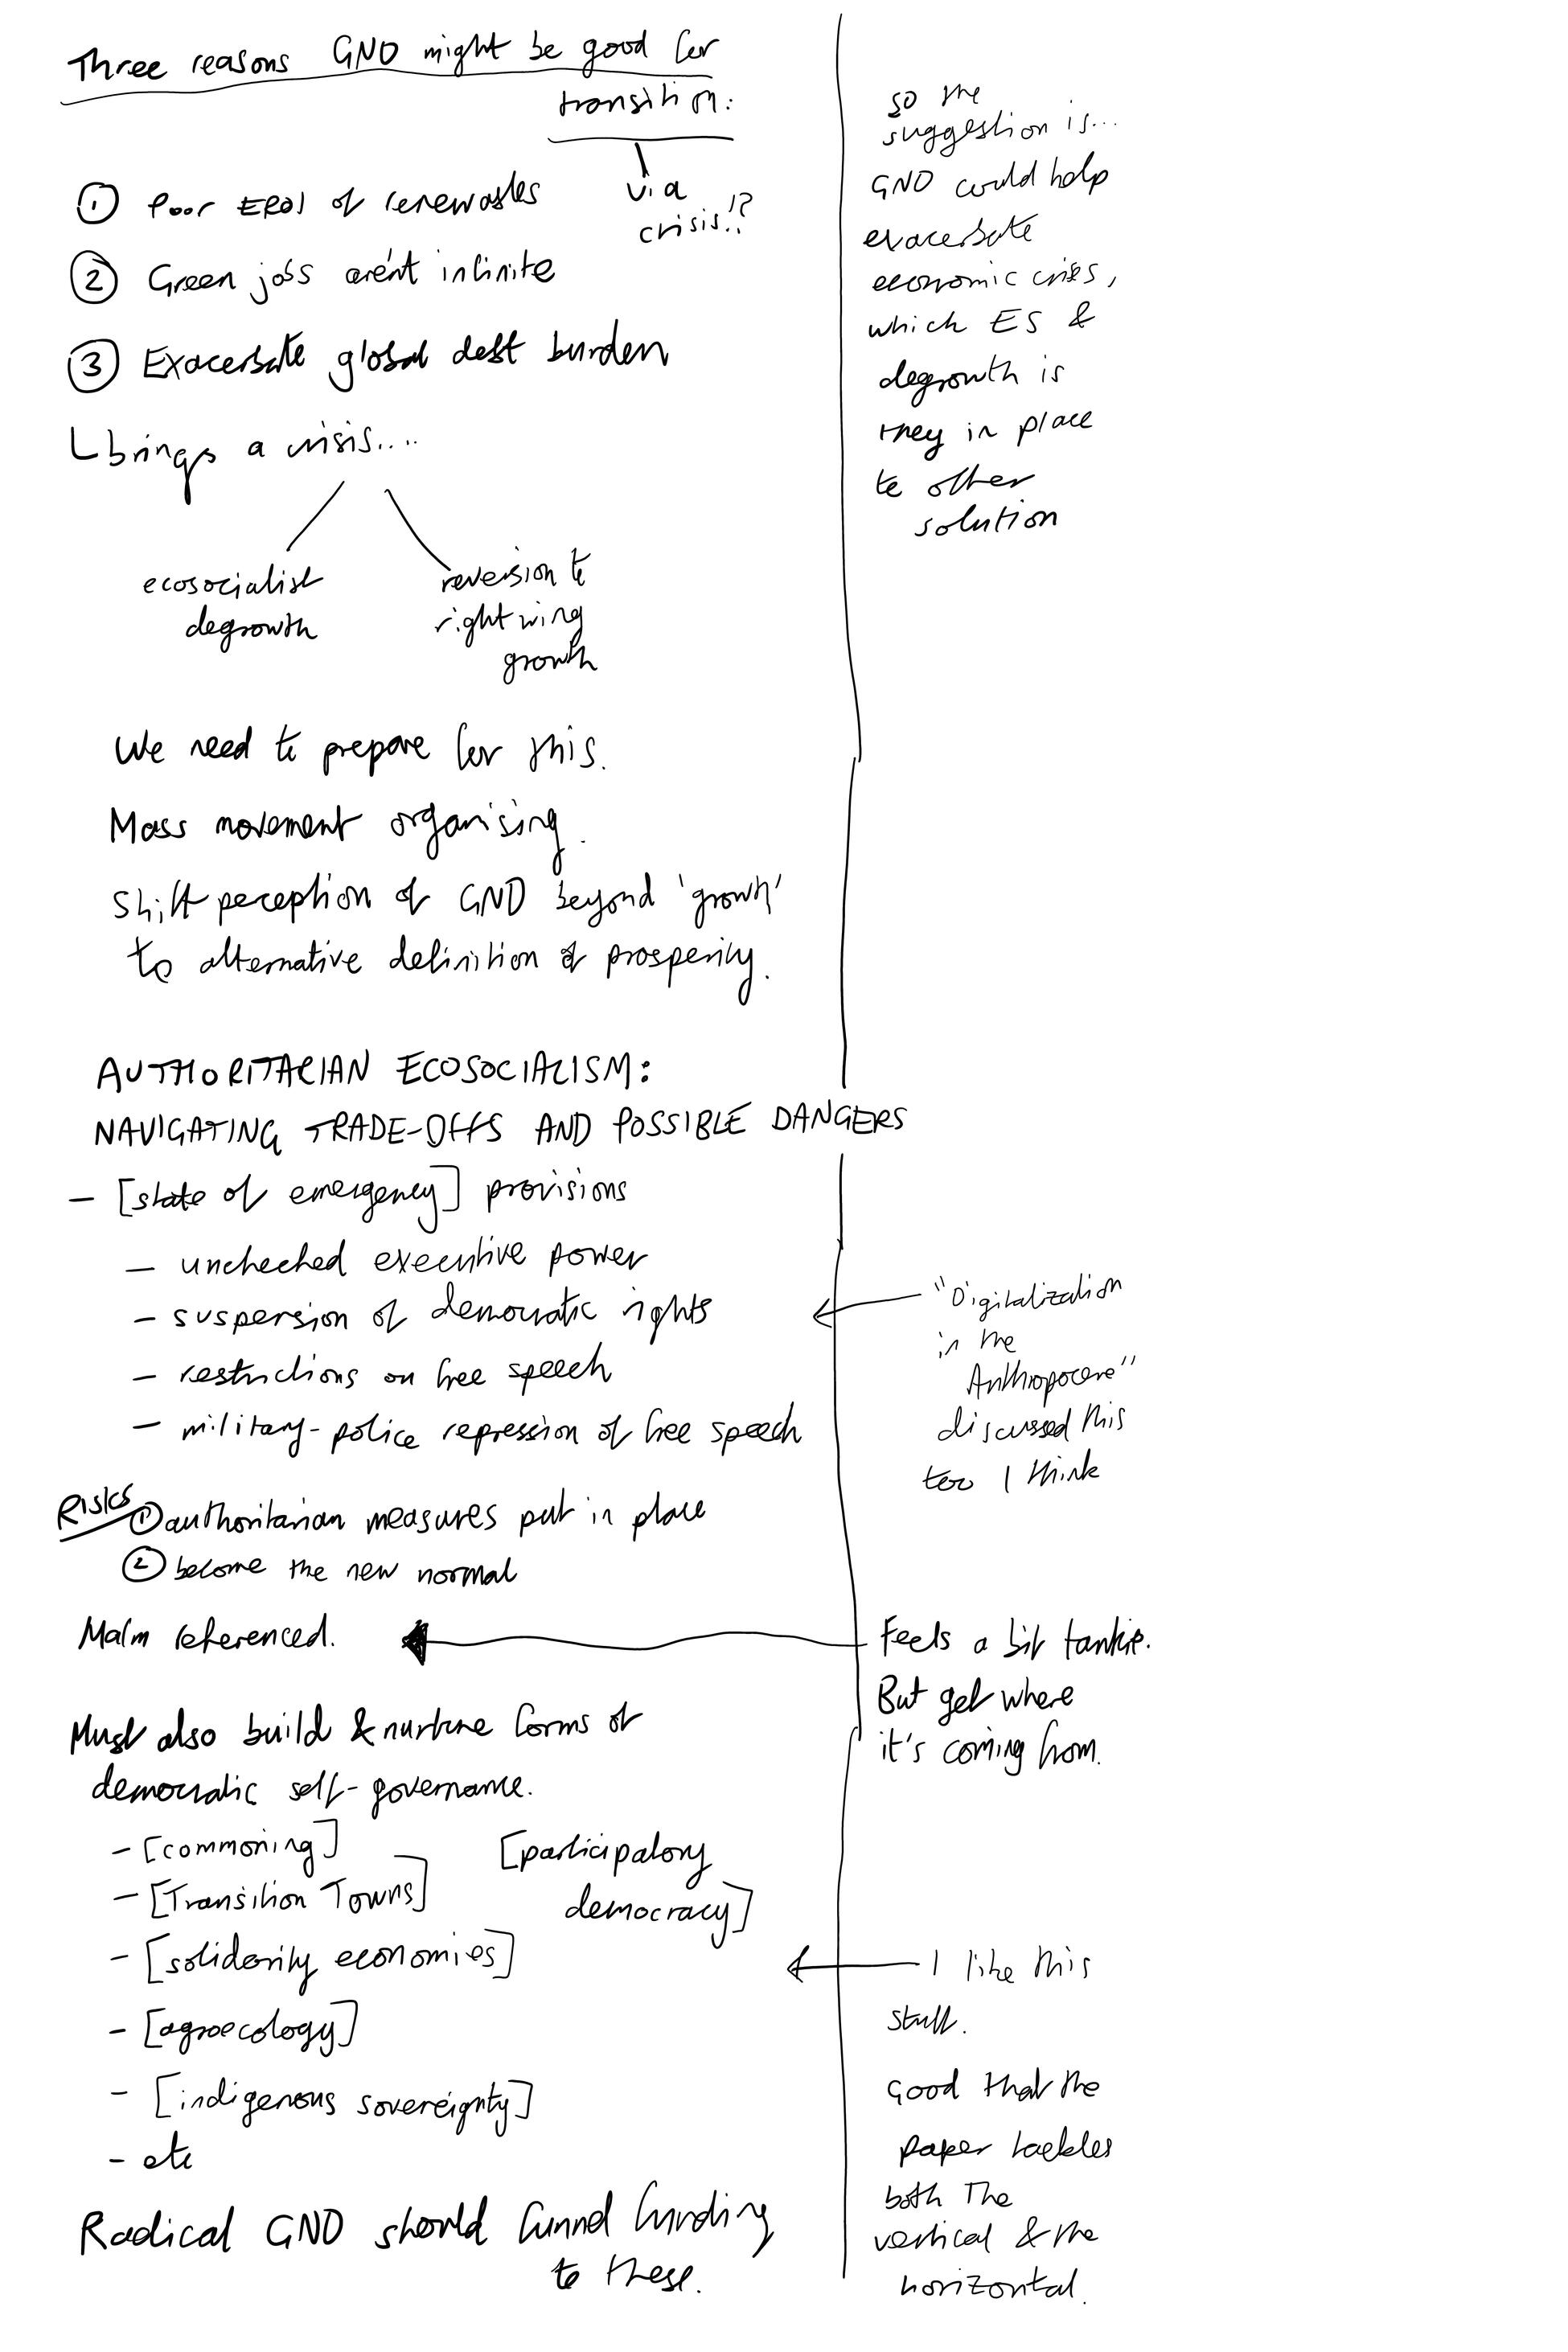 Three reasons GND might be good for
transition:
via
crisis!?
① Poor EROI of renewables
② Green jobs aren't infinite
③ Exacerbate global debt burden
brings a crisis....
ecosocialist
degrowth
reversion to
right wing
growth
We need to prepare for this.
Mass movement organising.
Shift perception of GND beyond 'growth'
to alternative definition of prosperity.
AUTHORITARIAN ECOSOCIALISM:
NAVIGATING TRADE-OFFS AND POSSIBLE DANGERS
- [state of emergency] provisions
- unchecked executive power
- suspension of democratic rights
- restrictions on free speech
- military-police repression of free speech
Risks ① authoritarian measures put in place
② become the new normal
Malm referenced.
Must also build & nurture forms of
democratic self-governance.
- [commoning]
- [Transition Towns]
[participatory
democracy]
- [solidarity economies]
- [agroecology]
- [indigenous sovereignty]
- etc
Radical GND should funnel funding
to these.
so the
suggestion is...
GND could help
exacerbate
economic crises,
which ES &
degrowth is
they in place
to offer
solution
"Digitalization
in the
Anthropocene"
discussed this
too I think
Feels a bit tankie.
But get where
it's coming from.
I like this
stuff.
Good that the
paper tackles
both the
vertical & the
horizontal.